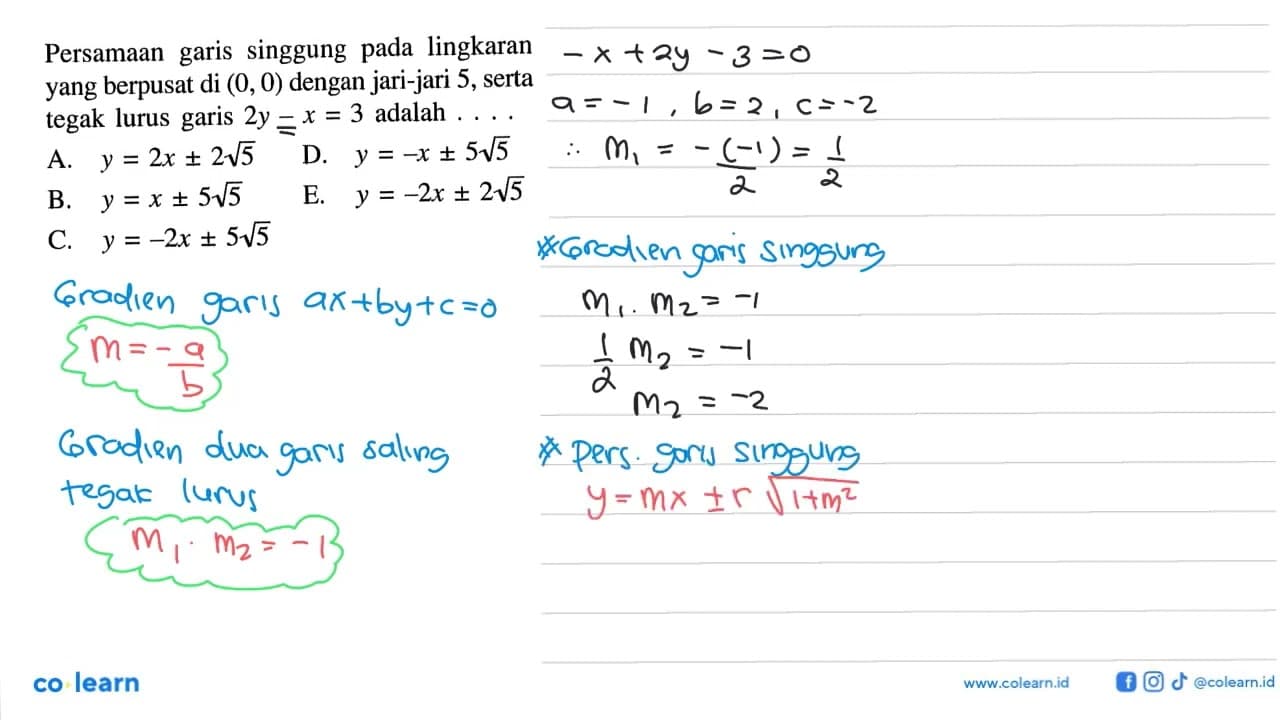 Persamaan garis singgung pada lingkaran
yang berpusat di (0, 0) dengan jari-jari 5, serta
tegak lurus garis 2y - x = 3 adalah . . . .
A. y = 2x ± 2√5 D. y = -x ± 5√5
B. y = x ± 5√5 E. y = -2x ± 2√5
C. y = -2x ± 5√5
Gradien garis ax+by+c=0
m = - a/b
Gradien dua garis saling
tegak lurus
m₁ . m₂ = -1
-x + 2y - 3 = 0
a = -1, b = 2, c = -2
∴ m₁ = -(-1)/2 = 1/2
*Gradien garis singgung
m₁ . m₂ = -1
1/2 m₂ = -1
m₂ = -2
* Pers. garis singgung
y = mx ± r √(1+m²)
co learn
www.colearn.id
@colearn.id